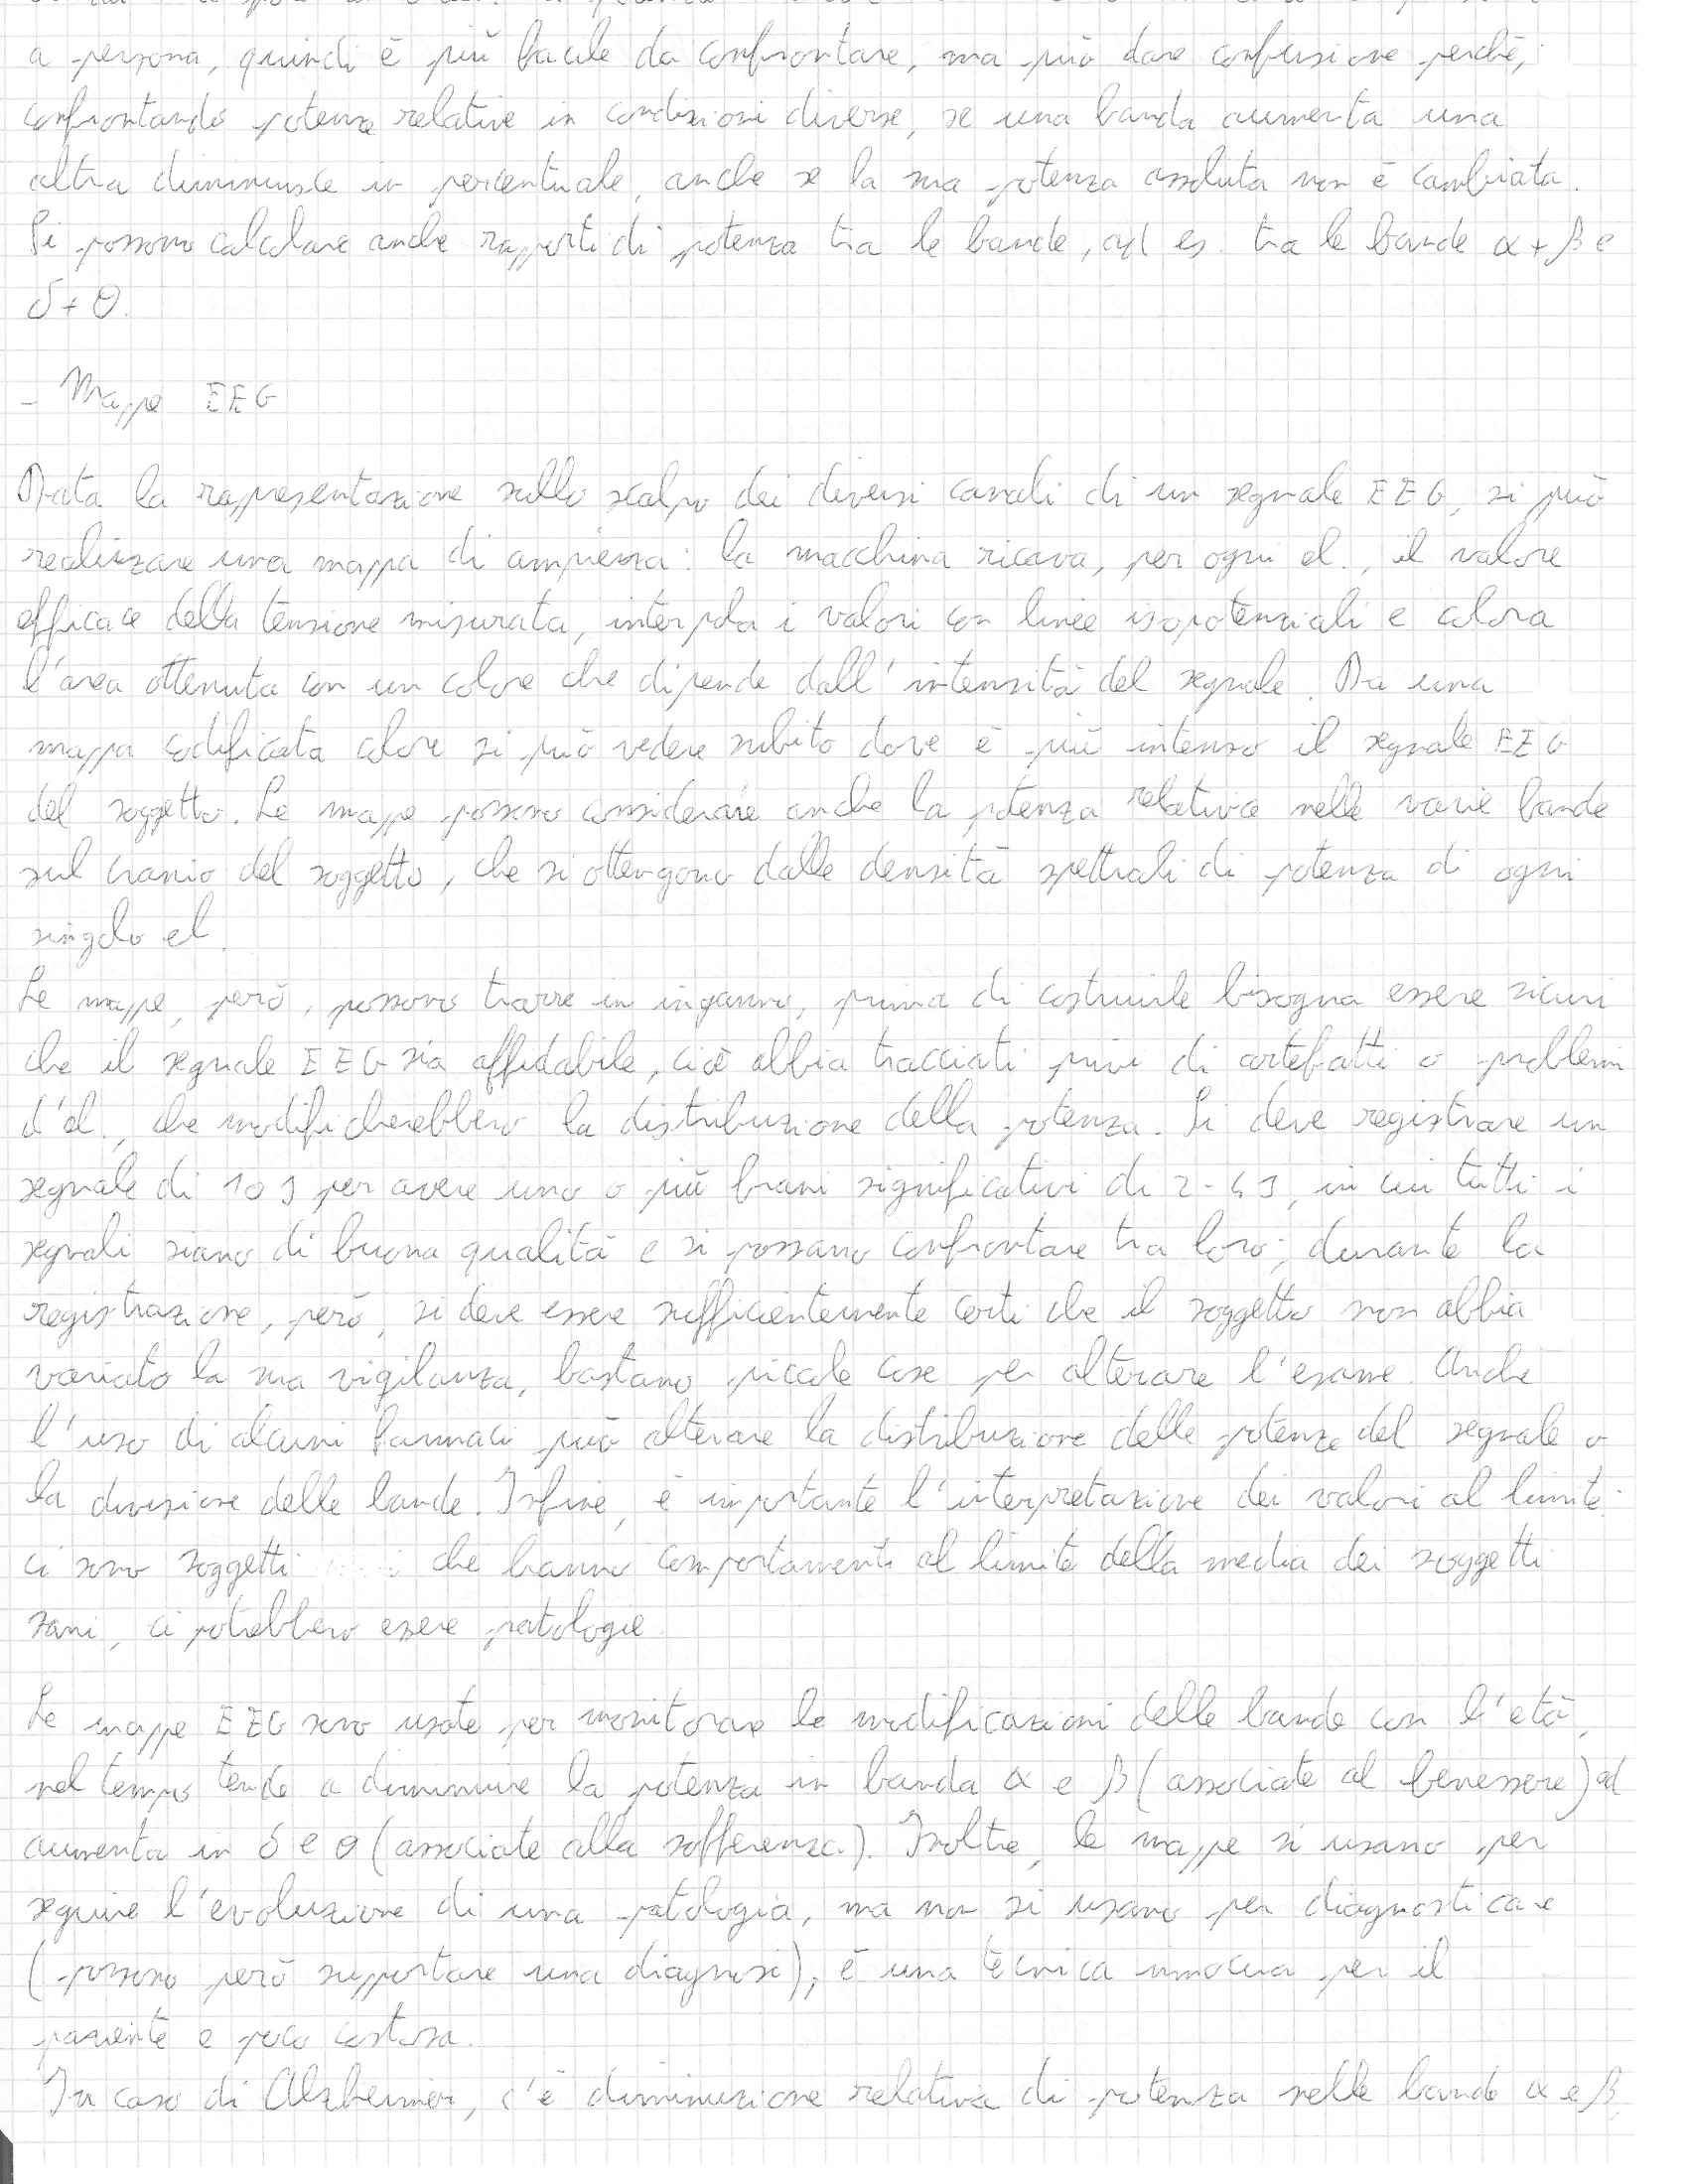 a persona, quindi è più facile da confrontare, ma può dare confusione perché,
confrontando potenze relative in condizioni diverse, se una banda aumenta una
altra diminuisce in percentuale, anche se la sua potenza assoluta non è cambiata.
Si possono calcolare anche rapporti di potenza tra le bande, ad es. tra le bande α+β e
δ+θ.
- Mappe EEG
Data la rappresentazione sullo scalpo dei diversi canali di un segnale EEG, si può
realizzare una mappa di ampiezza: la macchina ricava, per ogni el., il valore
efficace della tensione misurata, interpola i valori con linee isopotenziali e colora
l'area ottenuta con un colore che dipende dall'intensità del segnale. Da una
mappa codificata colore si può vedere subito dove è più intenso il segnale EEG
del soggetto. Le mappe possono considerare anche la potenza relativa nelle varie bande
sul cranio del soggetto, che si ottengono dalle densità spettrali di potenza di ogni
singolo el.
Le mappe, però, possono trarre in inganno, prima di costruirle bisogna essere sicuri
che il segnale EEG sia affidabile, cioè abbia tracciati privi di artefatti o problemi
d'el., che modificherebbero la distribuzione della potenza. Si deve registrare un
segnale di 10 s per avere uno o più brani significativi di 2-4 s, in cui tutti i
segnali siano di buona qualità e si possano confrontare tra loro; durante la
registrazione, però, si deve essere sufficientemente certi che il soggetto non abbia
variato la sua vigilanza, bastano piccole cose per alterare l'esame. Anche
l'uso di alcuni farmaci può alterare la distribuzione delle potenze del segnale o
la divisione delle bande. Infine, è importante l'interpretazione dei valori al limite:
ci sono soggetti che hanno comportamenti al limite della media dei soggetti
sani, ci potrebbero essere patologie.
Le mappe EEG sono usate per monitorare le modificazioni delle bande con l'età,
nel tempo tende a diminuire la potenza in banda α e β (associate al benessere) ed
aumenta in δ e θ (associate alla sofferenza). Inoltre, le mappe si usano per
seguire l'evoluzione di una patologia, ma non si usano per diagnosticare
(possono però supportare una diagnosi), è una tecnica innocua per il
paziente e poco costosa.
In caso di Alzheimer, c'è diminuzione relativa di potenza nelle bande α e β,